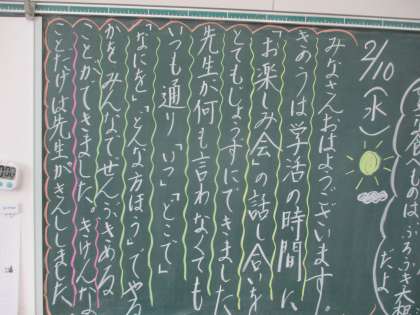 給食は、ふろふき大根
だよ
2/10(水)
みなさんおはようございます。
きのうは学活の時間に
「お楽しみ会」の話し合いを
とてもじょうずにできました。
先生が何も言わなくても
いつも通り「いつ」「どこで」
「なにを」「どんな方ほう」でやる
かをみんなでぜんぶきめる
ことができました。きけんな
ことだけは先生がきんししました。